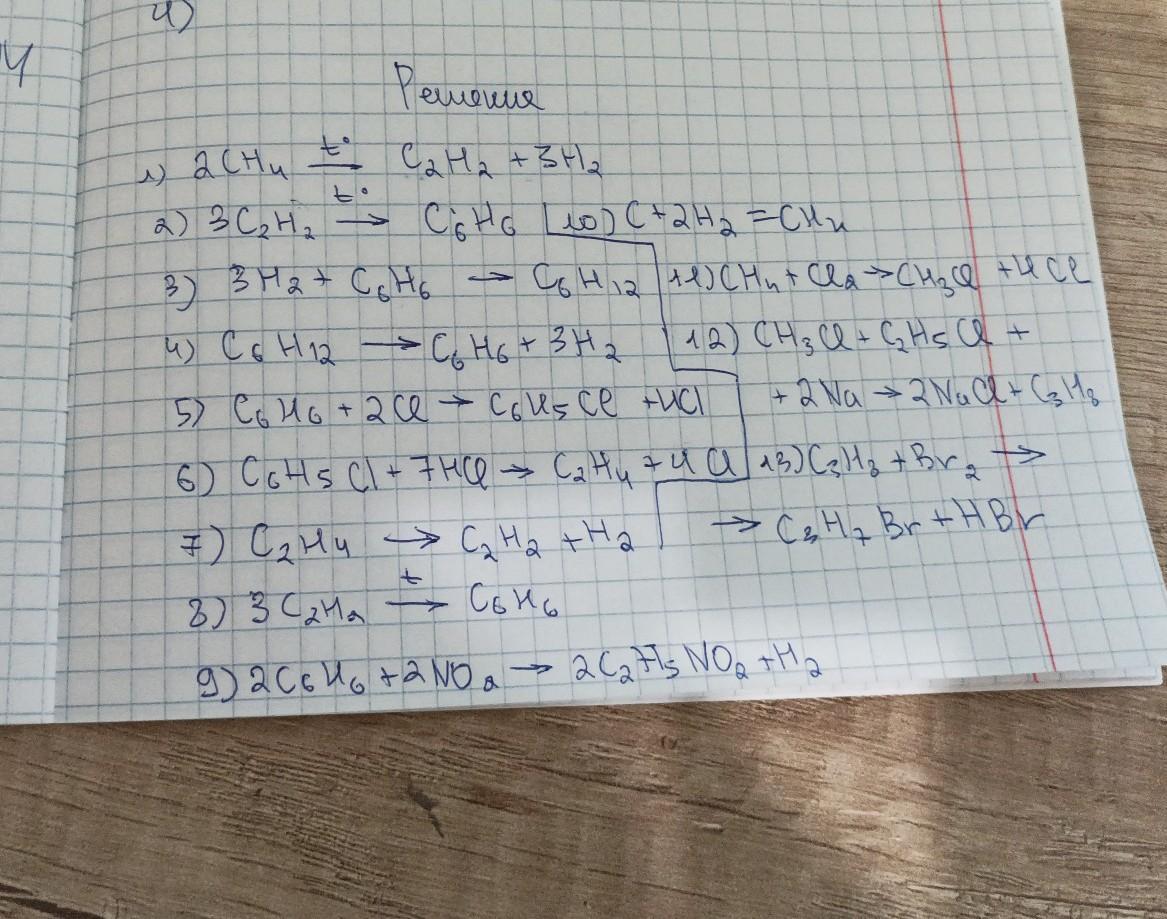 4)
Решения
1) 2CH₄ t° → C₂H₂ + 3H₂
2) 3C₂H₂ t° → C₆H₆
3) 3H₂ + C₆H₆ → C₆H₁₂
4) C₆H₁₂ → C₆H₆ + 3H₂
5) C₆H₆ + 2Cl → C₆H₅Cl + HCl
6) C₆H₅Cl + 7HCl → C₂H₄ + 4Cl
7) C₂H₄ → C₂H₂ + H₂
8) 3C₂H₂ t → C₆H₆
9) 2C₆H₆ + 2NO₂ → 2C₂H₅NO₂ + H₂
10) C + 2H₂ = CH₄
11) CH₄ + Cl₂ → CH₃Cl + HCl
12) CH₃Cl + C₂H₅Cl +
+ 2Na → 2NaCl + C₃H₈
13) C₃H₈ + Br₂ →
→ C₃H₇Br + HBr